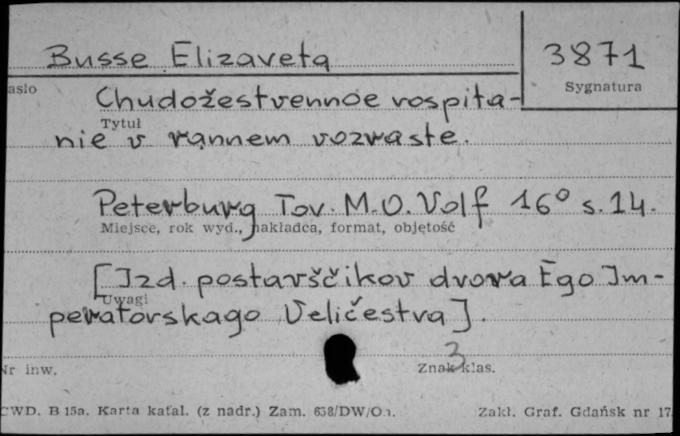 Busse Elizaveta
3871
asło
Sygnatura
Chudožestvennoe vospita-
Tytuł
nie v rannem vozraste.
Peterburg Tov. M.O. Volf 16° s. 14.
Miejsce, rok wyd., nakładca, format, objętość
[Izd. postavščikov dvora Ego Im-
Uwagi
peratorskago Veličestva].
3
Nr inw.
Znak klas.
CWD. B 15a. Karta katal. (z nadr.) Zam. 638/DW/On.
Zakł. Graf. Gdańsk nr 17